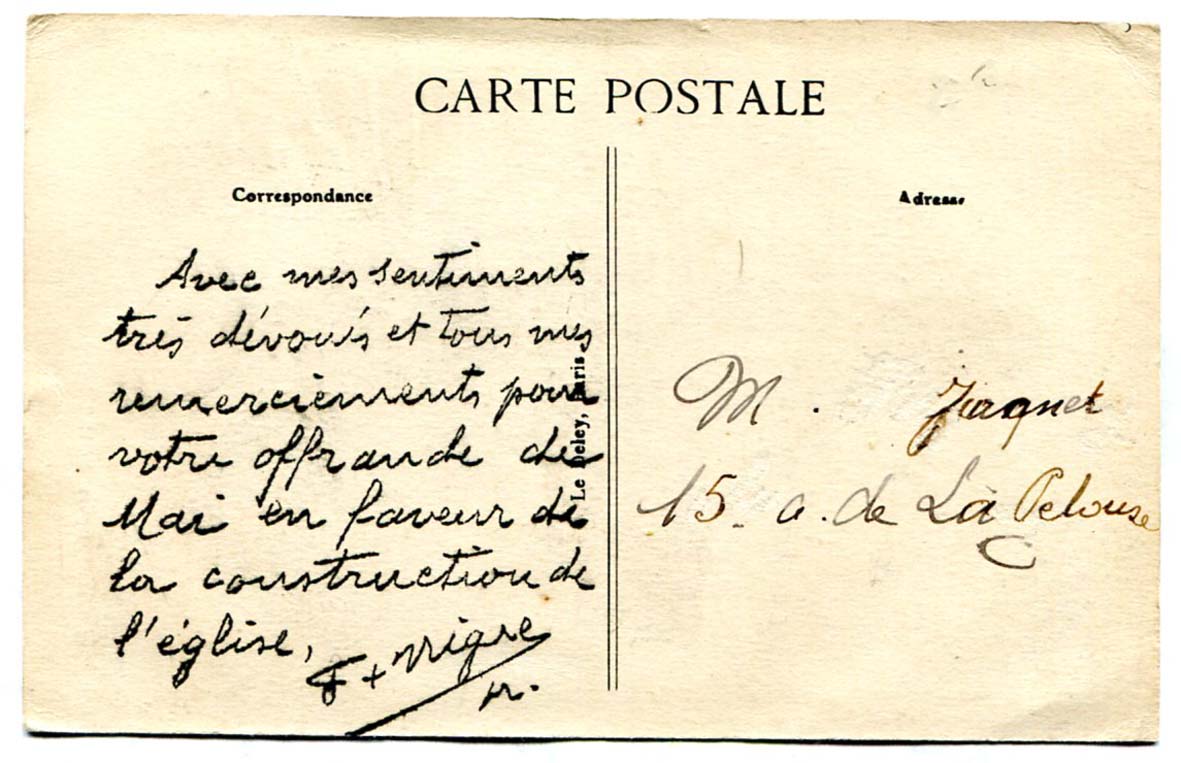 CARTE POSTALE
Correspondance
Avec mes sentiments
très dévoués et tous mes
remerciements pour
votre offrande de
Mai en faveur de
la construction de
l'église,
F + Vigne
Le Deley, Paris
Adresse
M. Jaquet
15. a. de La Pelouse